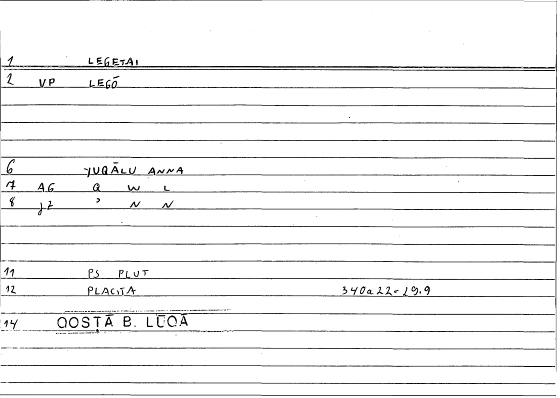 1 LEGETAI
2 VP LEGŌ
6 YUQĀLU ANNA
7 AG Q W L
8 j2 ʾ N N
11 PS PLUT
12 PLACITA 340a22-29.9
14 QOSTĀ B. LŪQĀ